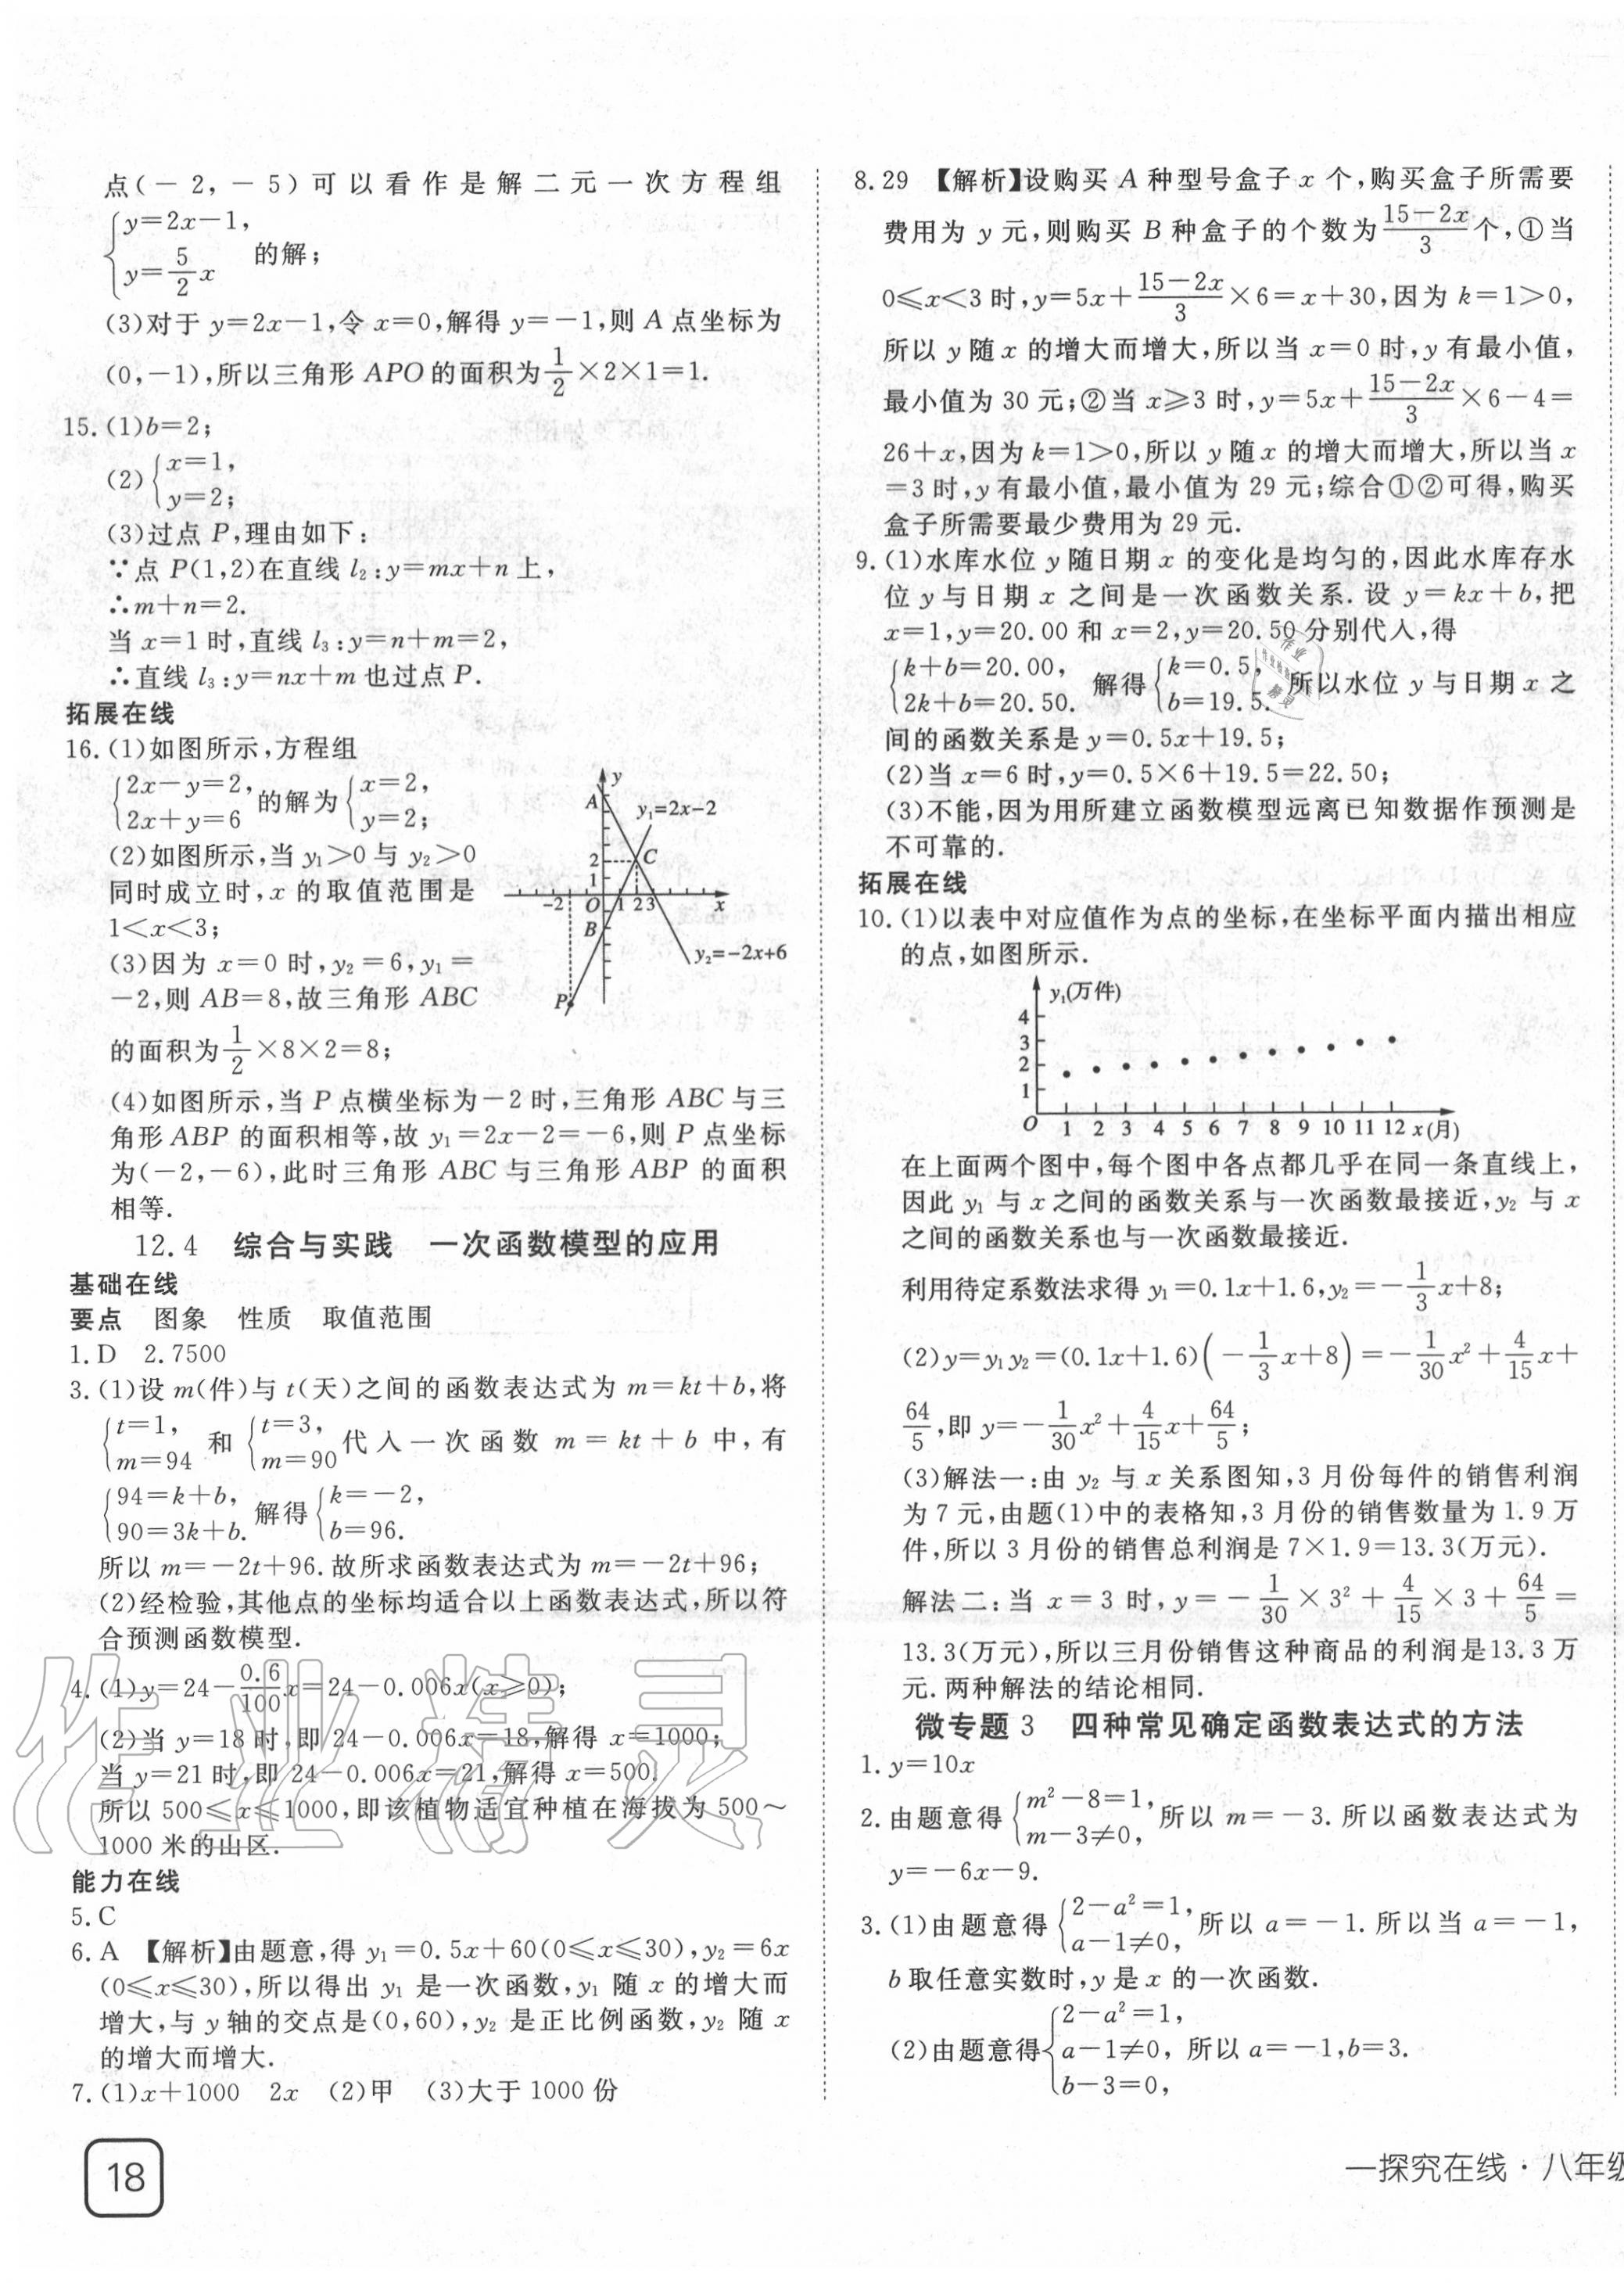 点(－2,－5)可以看作是解二元一次方程组
{y=2x-1,
y=5/2x 的解;
(3)对于 y=2x-1,令 x=0,解得 y=-1,则 A 点坐标为
(0,-1),所以三角形 APO 的面积为1/2×2×1=1.
15.(1)b=2;
(2){x=1,
y=2;
(3)过点 P,理由如下:
∵点 P(1,2)在直线 l₂:y=mx+n 上,
∴m+n=2.
当 x=1 时,直线 l₃:y=n+m=2,
∴直线 l₃:y=nx+m 也过点 P.
拓展在线
16.(1)如图所示,方程组
{2x-y=2,
2x+y=6 的解为{x=2,
y=2;
(2)如图所示,当 y₁>0 与 y₂>0
同时成立时,x 的取值范围是
1<x<3;
(3)因为 x=0 时,y₂=6,y₁=
-2,则 AB=8,故三角形 ABC
的面积为1/2×8×2=8;
y
A
y₁=2x-2
2
C
1
-2 O 1 2 3 x
B
y₂=-2x+6
P
(4)如图所示,当 P 点横坐标为-2 时,三角形 ABC 与三
角形 ABP 的面积相等,故 y₁=2x-2=-6,则 P 点坐标
为(-2,-6),此时三角形 ABC 与三角形 ABP 的面积
相等.
12.4 综合与实践 一次函数模型的应用
基础在线
要点 图象 性质 取值范围
1.D 2.7500
3.(1)设 m(件)与 t(天)之间的函数表达式为 m=kt+b,将
{t=1,
m=94 和 {t=3,
m=90 代入一次函数 m=kt+b 中,有
{94=k+b,
90=3k+b. 解得{k=-2,
b=96.
所以 m=-2t+96.故所求函数表达式为 m=-2t+96;
(2)经检验,其他点的坐标均适合以上函数表达式,所以符
合预测函数模型.
4.(1)y=24-0.6/100x=24-0.006x(x≥0);
(2)当 y=18 时,即 24-0.006x=18,解得 x=1000;
当 y=21 时,即 24-0.006x=21,解得 x=500.
所以 500≤x≤1000,即该植物适宜种植在海拔为 500～
1000 米的山区.
能力在线
5.C
6.A 【解析】由题意,得 y₁=0.5x+60(0≤x≤30),y₂=6x
(0≤x≤30),所以得出 y₁ 是一次函数,y₁ 随 x 的增大而
增大,与 y 轴的交点是(0,60),y₂ 是正比例函数,y₂ 随 x
的增大而增大.
7.(1)x+1000 2x (2)甲 (3)大于 1000 份
18
8.29 【解析】设购买 A 种型号盒子 x 个,购买盒子所需要
费用为 y 元,则购买 B 种盒子的个数为(15-2x)/3个,①当
0≤x<3 时,y=5x+(15-2x)/3×6=x+30,因为 k=1>0,
所以 y 随 x 的增大而增大,所以当 x=0 时,y 有最小值,
最小值为 30 元;②当 x≥3 时,y=5x+(15-2x)/3×6-4=
26+x,因为 k=1>0,所以 y 随 x 的增大而增大,所以当 x
=3 时,y 有最小值,最小值为 29 元;综合①②可得,购买
盒子所需要最少费用为 29 元.
9.(1)水库水位 y 随日期 x 的变化是均匀的,因此水库存水
位 y 与日期 x 之间是一次函数关系.设 y=kx+b,把
x=1,y=20.00 和 x=2,y=20.50 分别代人,得
{k+b=20.00,
2k+b=20.50. 解得{k=0.5,
b=19.5. 所以水位 y 与日期 x 之
间的函数关系是 y=0.5x+19.5;
(2)当 x=6 时,y=0.5×6+19.5=22.50;
(3)不能,因为用所建立函数模型远离已知数据作预测是
不可靠的.
拓展在线
10.(1)以表中对应值作为点的坐标,在坐标平面内描出相应
的点,如图所示.
y₁(万件)
4
3
2
1
O 1 2 3 4 5 6 7 8 9 10 11 12 x(月)
在上面两个图中,每个图中各点都几乎在同一条直线上,
因此 y₁ 与 x 之间的函数关系与一次函数最接近,y₂ 与 x
之间的函数关系也与一次函数最接近.
利用待定系数法求得 y₁=0.1x+1.6,y₂=-1/3x+8;
(2)y=y₁y₂=(0.1x+1.6)(-1/3x+8)=-1/30x²+4/15x+
64/5,即 y=-1/30x²+4/15x+64/5;
(3)解法一:由 y₂ 与 x 关系图知,3 月份每件的销售利润
为 7 元,由题(1)中的表格知,3 月份的销售数量为 1.9 万
件,所以 3 月份的销售总利润是 7×1.9=13.3(万元).
解法二:当 x=3 时,y=-1/30×3²+4/15×3+64/5=
13.3(万元),所以三月份销售这种商品的利润是13.3 万
元.两种解法的结论相同.
微专题 3 四种常见确定函数表达式的方法
1.y=10x
2.由题意得{m²-8=1,
m-3≠0, 所以 m=-3.所以函数表达式为
y=-6x-9.
3.(1)由题意得{2-a²=1,
a-1≠0, 所以 a=-1.所以当 a=-1,
b 取任意实数时,y 是 x 的一次函数.
(2)由题意得{2-a²=1,
a-1≠0, 所以 a=-1,b=3.
b-3=0,
—探究在线·八年级
作业精灵